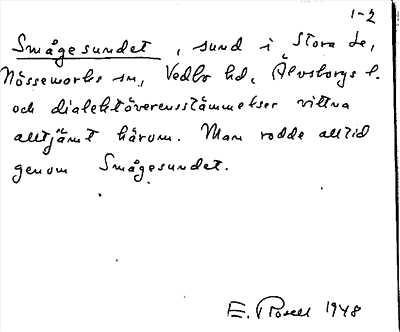 1-2
Smågesundet, sund i Stora Le,
Nössemarks sn, Vedbo hd, Älvsborgs l.
och dialektöverensstämmelser vittna
alltjämt härom. Man rodde alltid
genom Smågesundet.
E. Rosell 1948